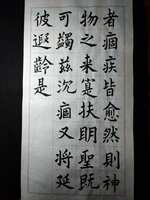 者痼疾皆愈然則神
物之来寔扶明聖既
可蠲兹沉痼又將延
彼遐齡是